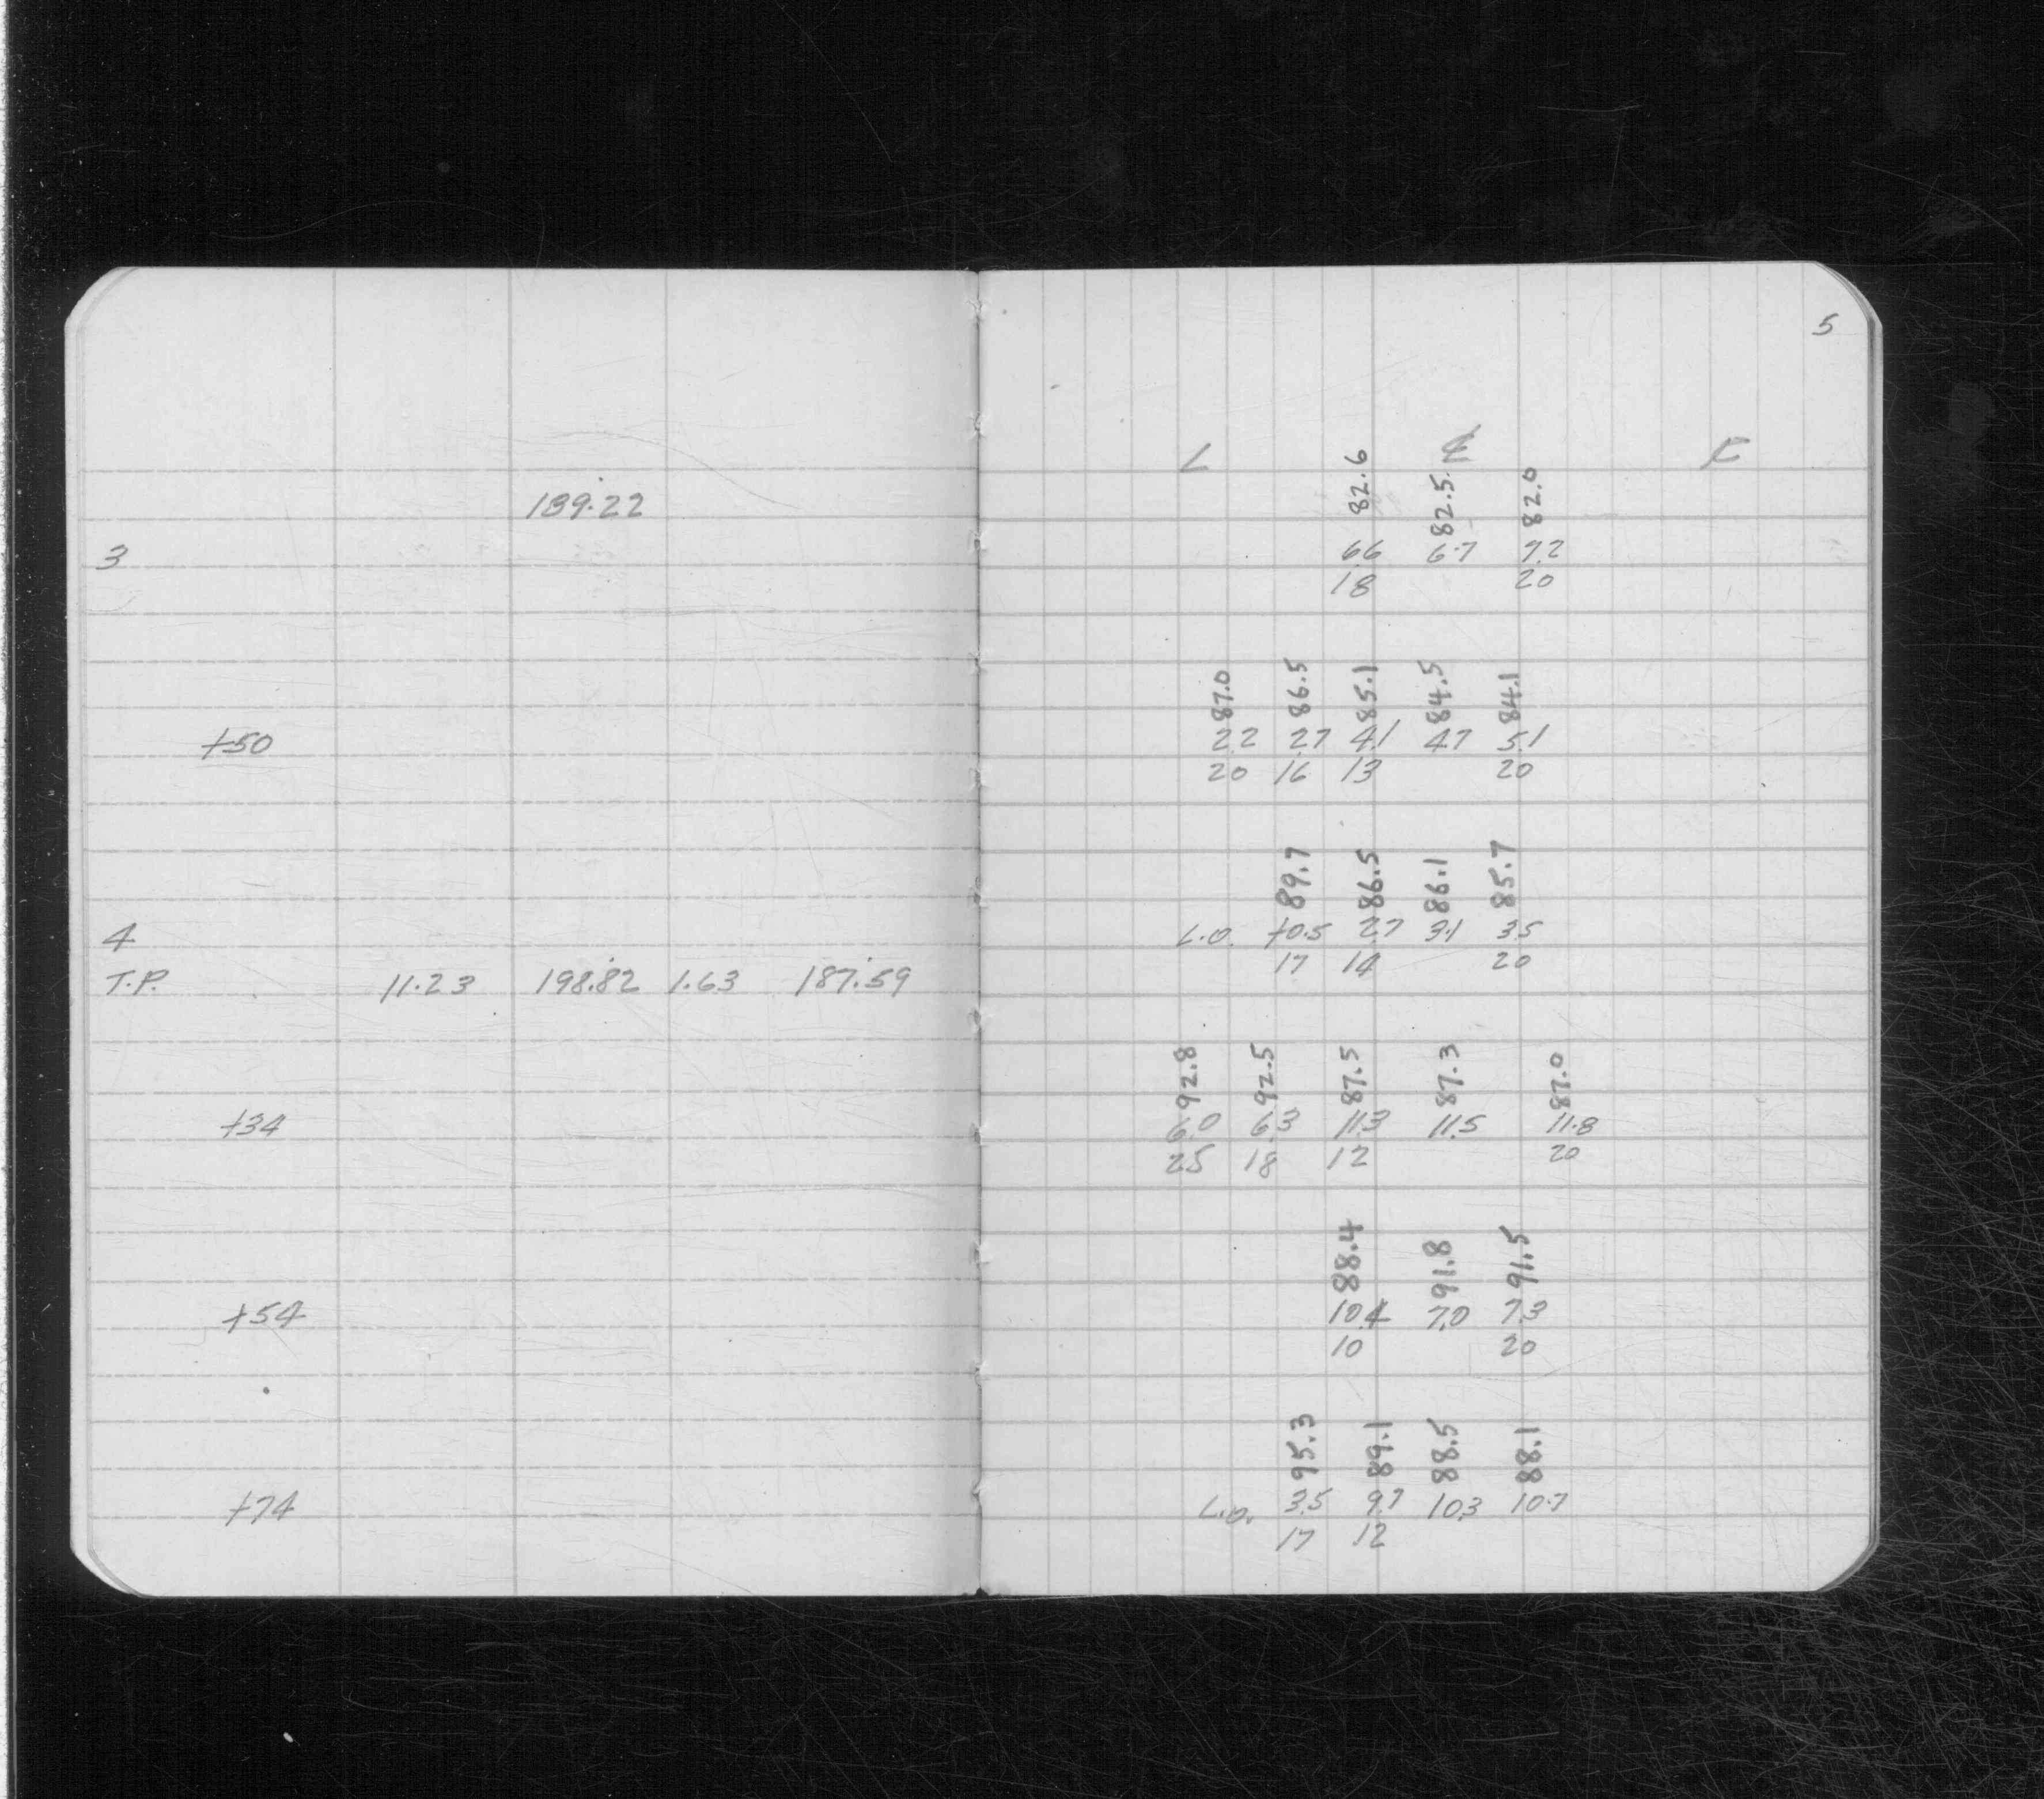 5
L ₵ R
82.6 82.5 82.0
189.22
3 6.6 6.7 7.2
18 20
87.0 86.5 85.1 84.5 84.1
+50 2.2 2.7 4.1 4.7 5.1
20 16 13 20
89.7 86.5 86.1 85.7
4 L.O. +0.5 2.7 3.1 3.5
17 14 20
T.P. 11.23 198.82 1.63 187.59
92.8 92.5 87.5 87.3 87.0
+34 6.0 6.3 11.3 11.5 11.8
25 18 12 20
88.4 91.8 91.5
+54 10.4 7.0 7.3
10 20
95.3 89.1 88.5 88.1
+74 L.O. 3.5 9.7 10.3 10.7
17 12